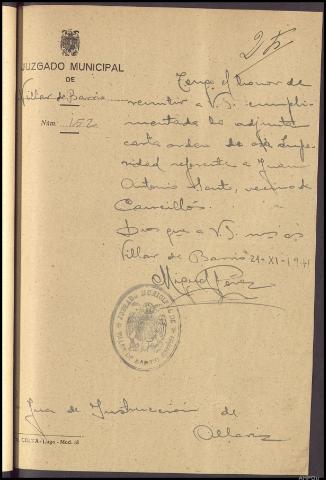 25
JUZGADO MUNICIPAL
DE
Villar de Barrio
Núm. 152
Tengo el honor de
remitir a V.S. cumpli-
mentada la adjunta
carta orden de esa Supe-
rioridad referente a Juan
Antonio Santo, vecino de
Dios gue a V.S. ms as
Villar de Barrio 24-XI-1941
Miguel Pérez
JUZGADO MUNICIPAL DE
VILLAR DE BARRIO
Juez de Instrucción de
Allariz
Lugo - Mod. 18